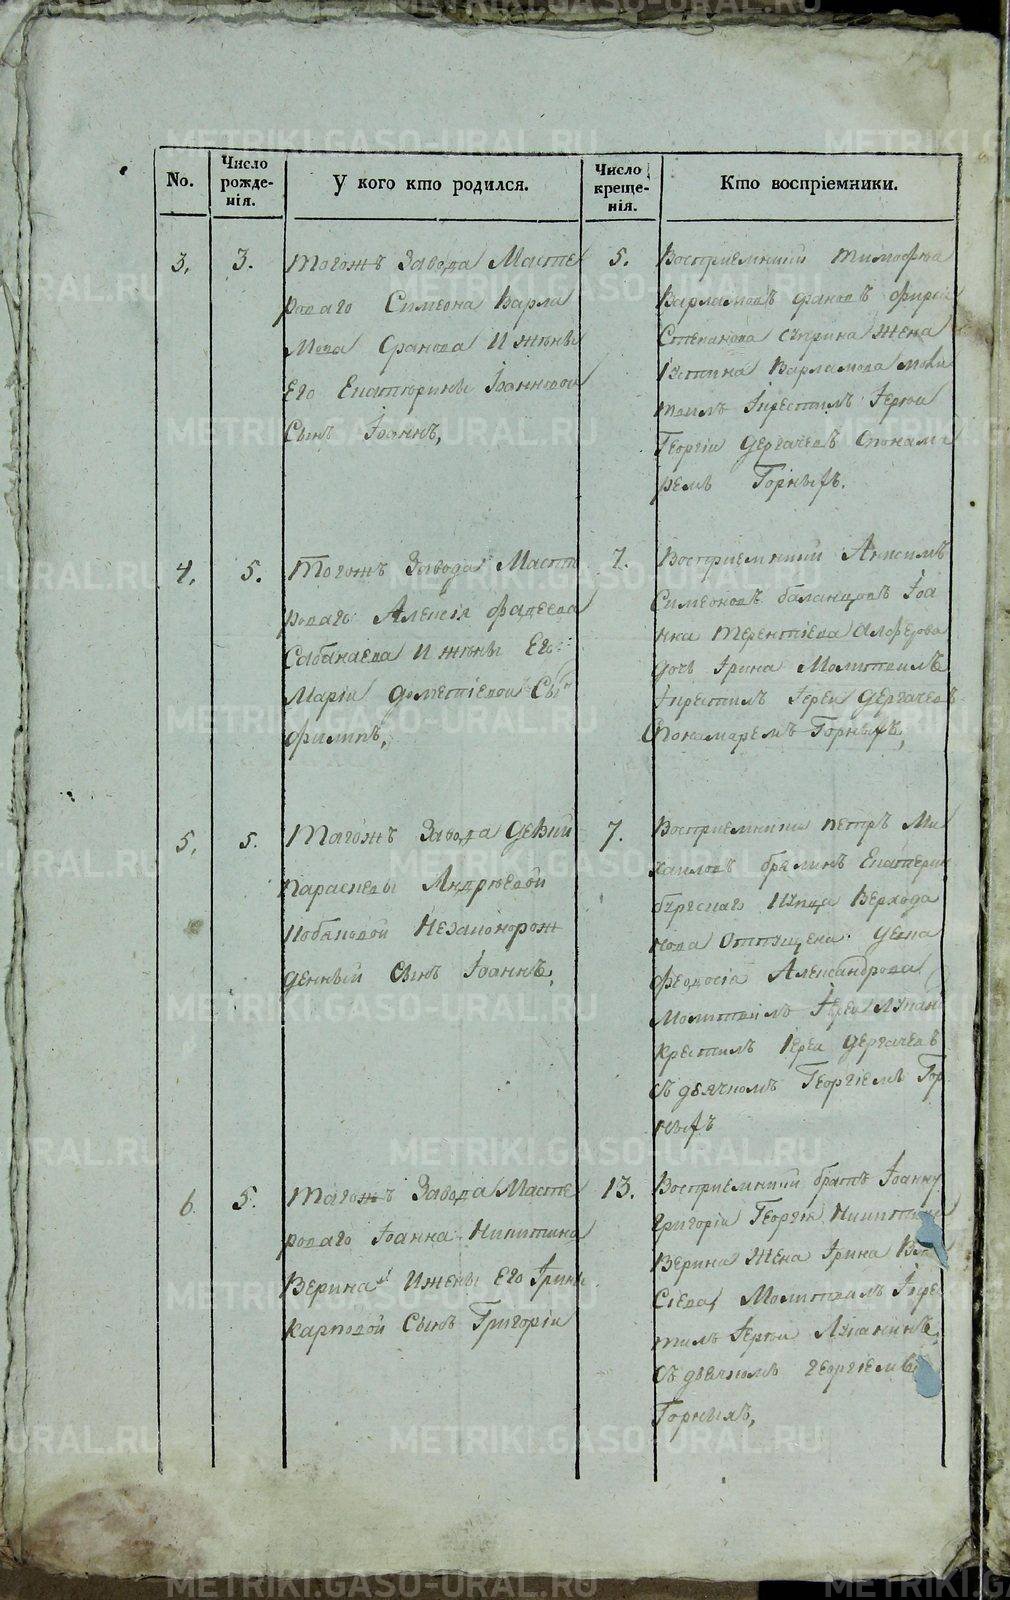 No.
Число рожде-нія.
У кого кто родился.
Число креще-нія.
Кто воспріемники.
3.
3.
Тогожъ Завода Масте
роваго Симеона Варла
Мова Фанова И жены
Его Екатерины Іоанновой
Сынъ Іоаннъ,
5.
Восприемники Тимофей
Варламовъ Фановъ
Степанова жена
Варламова моли
твилъ Iкрестилъ Iереи
Георгіи Дергачевъ Спонома
ремъ Горныхъ.
4.
5.
Тогожъ Завода Масте
роваго Алексія Фадеева
Сабанаева И жены Его
Маріи Дометіевой Сынъ
Филипъ,
7.
Восприемники Анисимъ
Симеоновъ Баланцовъ Іоа
нна Терентіева Алферова
дочь Ірина Молитвилъ
Iкрестилъ Іереи Дергачевъ
Спономаремъ Горныхъ,
5.
5.
Тагожъ Завода Девки
Параскевы Андреевой
Лобановой Незаконорож
денный сынъ Іоаннъ,
7.
Восприемники Петръ Ми
хаиловъ Екатерин
бургскаго Купца Верхода
нова Отпущена Девка
Феодосія Александрова
Молитвилъ Іереи Луканинъ
Крестилъ Іереи Дергачевъ
Съ дьячкомъ Георгіемъ Гор
ныхъ
6.
5.
Тагожъ Завода Масте
роваго Іоанна Никитина
Верина И жены Его Ірины
Карповой Сынъ Григоріи
13.
Восприемники братъ Іоанну
Григоріи Георгіи Никитины
Верина Жена Ірина
Молитвилъ Iкрес
тилъ Іереи Луканинъ,
Съ дьячкомъ Георгіемъ
Горныхъ,
METRIKI.GASO-URAL.RU